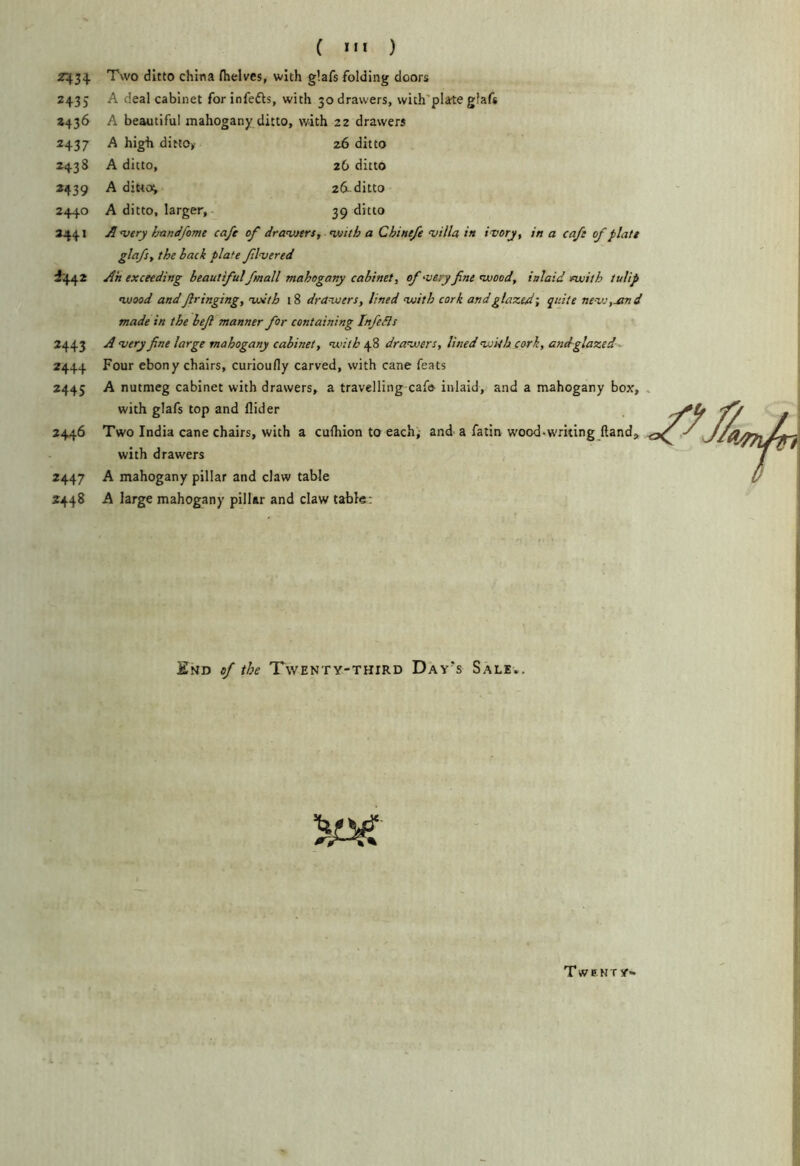 ( 111 )
2434 Two ditto china ſhelves, with glaſs folding doors
2435 A deal cabinet for inſects, with 30 drawers, with plate glaſs
2436 A beautiful mahogany ditto, with 22 drawers
2437 A high ditto, 26 ditto
2438 A ditto, 26 ditto
2439 A ditto, 26 ditto
2440 A ditto, larger, 39 ditto
2441 A very handſome caſe of drawers, with a Chineſe villa in ivory, in a caſe of plate
glaſs, the back plate ſilvered
2442 An exceeding beautiful ſmall mahogany cabinet, of very fine wood, inlaid with tulip
wood and ſtringing, with 18 drawers, lined with cork and glazed; quite new, and
made in the beſt manner for containing Inſects
2443 A very fine large mahogany cabinet, with 48 drawers, lined with cork, and glazed
2444 Four ebony chairs, curiouſly carved, with cane ſeats
2445 A nutmeg cabinet with drawers, a travelling caſe inlaid, and a mahogany box,
with glaſs top and ſlider
2446 Two India cane chairs, with a cuſhion to each, and a ſatin wood-writing ſtand,
with drawers
2447 A mahogany pillar and claw table
2448 A large mahogany pillar and claw table
END of the TWENTY-THIRD DAY'S SALE.
TWENTY-